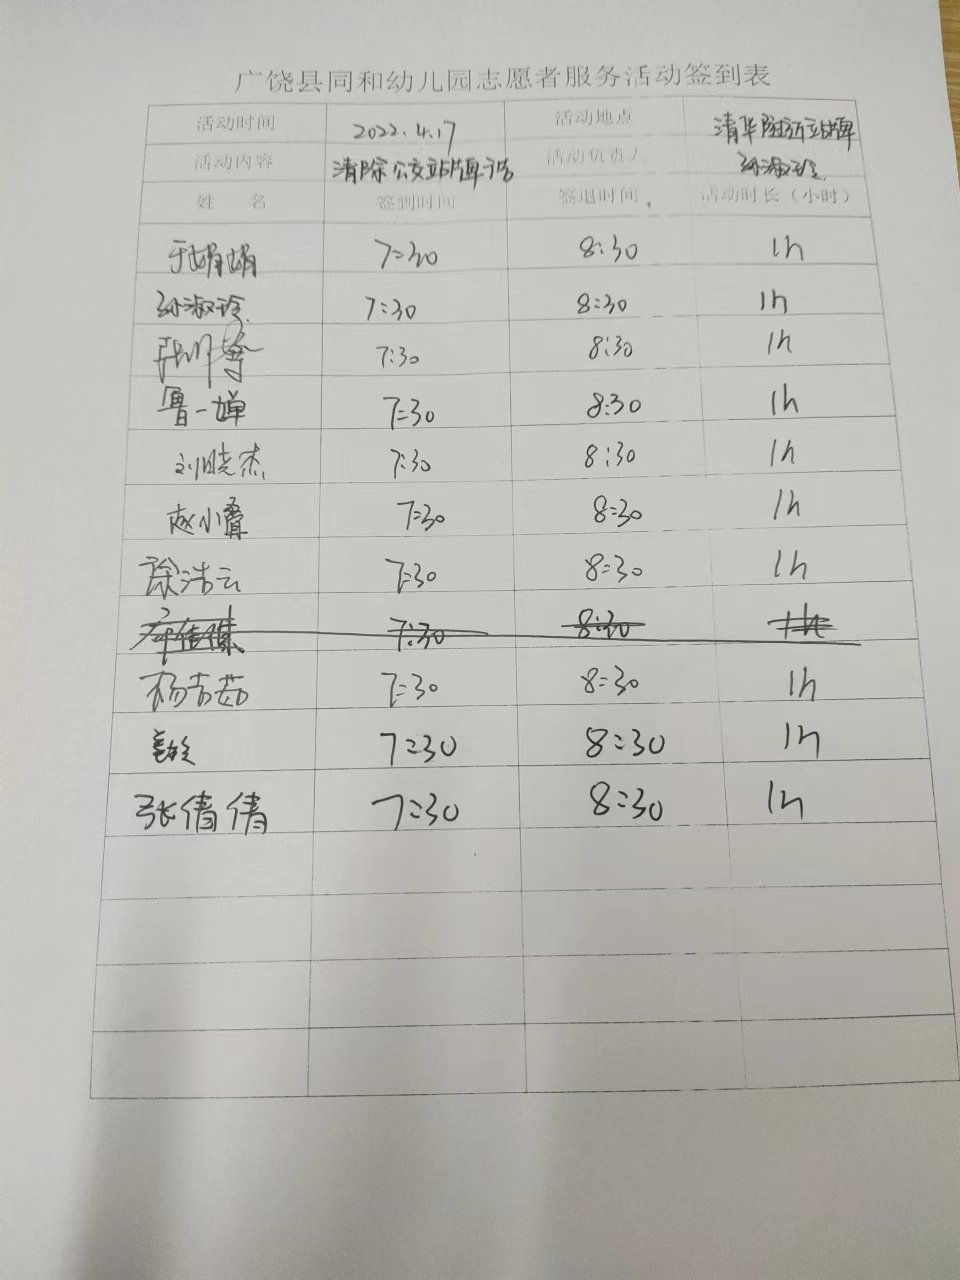 广饶县同和幼儿园志愿者服务活动签到表
活动时间 2022.4.17 活动地点 清华附近站牌
活动内容 清除公交站牌广告 活动负责人 孙淑玲
姓 名 签到时间 签退时间 活动时长（小时）
于娟娟 7:30 8:30 1h
孙淑玲 7:30 8:30 1h
7:30 8:30 1h
鲁一婵 7:30 8:30 1h
刘晓杰 7:30 8:30 1h
赵小 7:30 8:30 1h
徐浩云 7:30 8:30 1h
7:30 8:30 1h
杨吉茹 7:30 8:30 1h
7:30 8:30 1h
张倩倩 7:30 8:30 1h